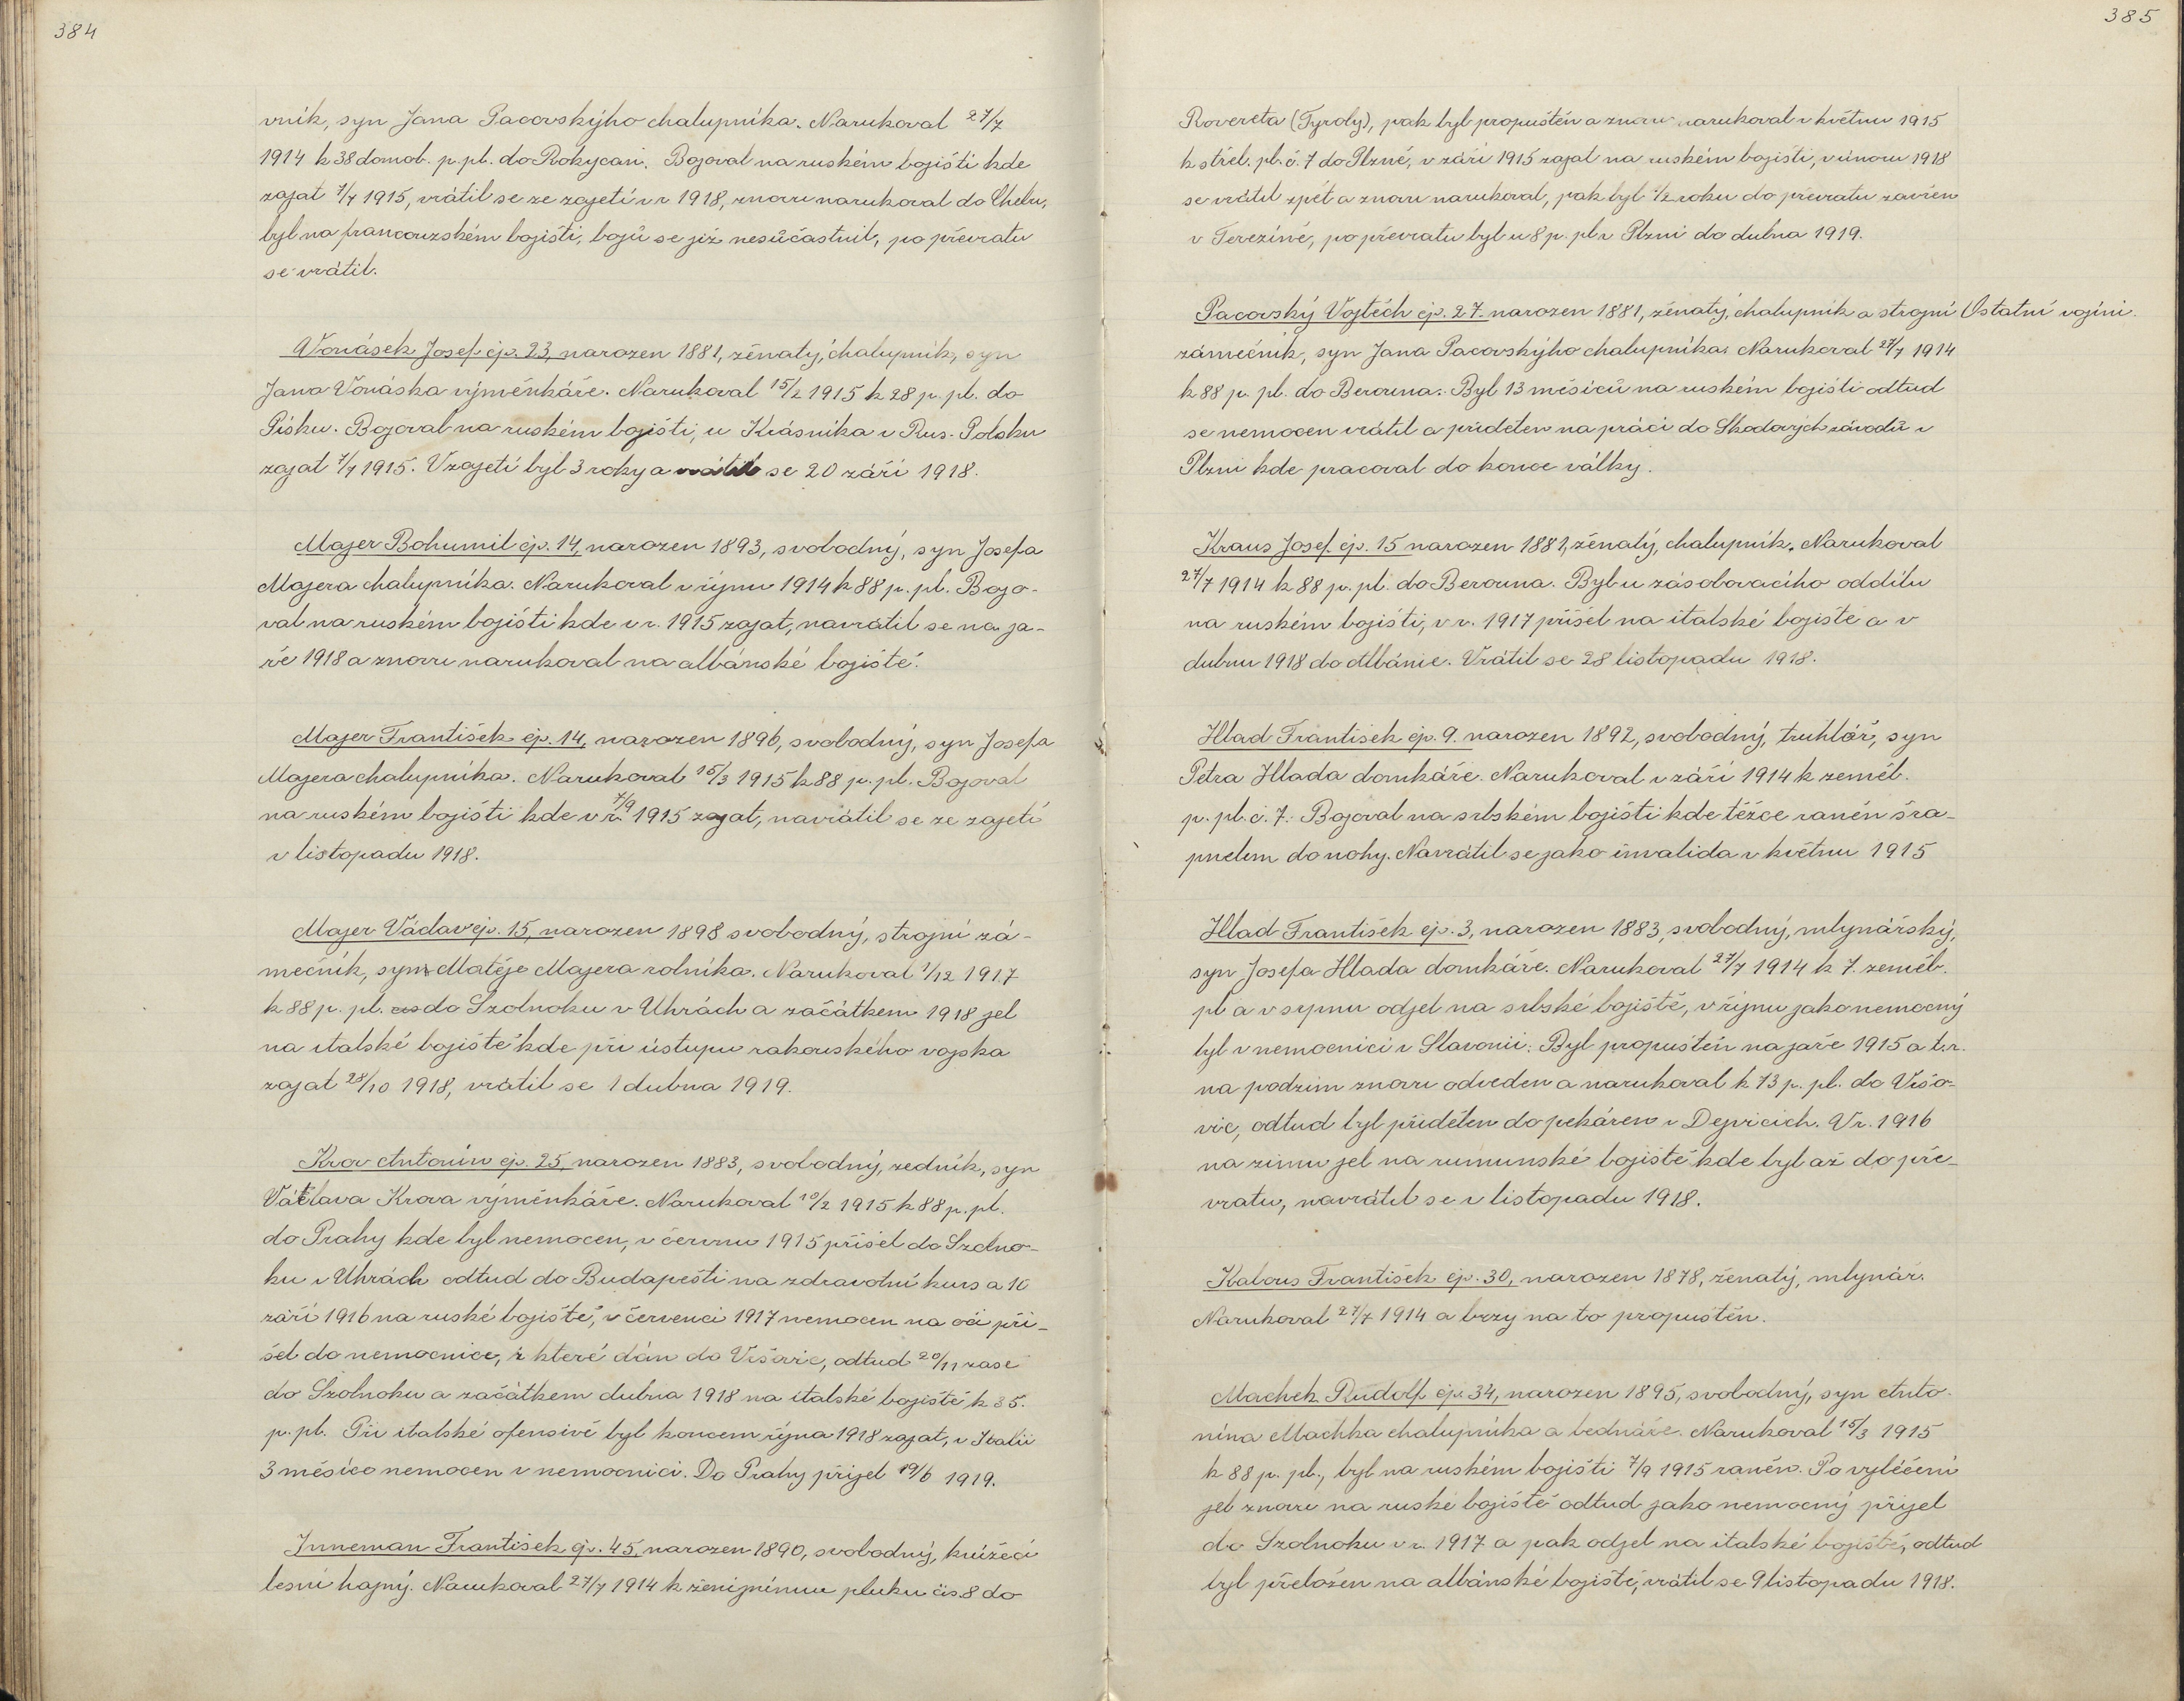 384
vník, syn Jana Pacovskýho chalupníka. Narukoval 27/7
1914 k 38 domob. p. pl. do Rokycan. Bojoval na ruském bojišti kde
zajat 7/7 1915, vrátil se ze zajetí v r 1918, znovu narukoval do Chebu,
byl na francouzském bojišti, bojů se již nesúčastnil, po převratu
se vrátil.
Vonásek Josef čp. 23, narozen 1881, ženatý, chalupník, syn
Jana Vonáska výměnkáře. Narukoval 15/2 1915 k 28 p. pl. do
Písku. Bojoval na ruském bojišti, u Krásníka v Rus. Polsku
zajat 7/7 1915. V zajetí byl 3 roky a vrátil se 20 září 1918.
Majer Bohumil čp. 14, narozen 1893, svobodný, syn Josefa
Majera chalupníka. Narukoval v říjnu 1914 k 88 p. pl. Bojo-
val na ruském bojišti kde v r. 1915 zajat, navrátil se na ja-
ře 1918 a znovu narukoval na albánské bojiště.
Majer František čp. 14, narozen 1896, svobodný, syn Josefa
Majera chalupníka. Narukoval 15/3 1915 k 88 p. pl. Bojoval
na ruském bojišti kde v r. 7/9 1915 zajat, navrátil se ze zajetí
v listopadu 1918.
Majer Václav čp. 15, narozen 1898 svobodný, strojní zá-
mečník, syn Matěje Majera rolníka. Narukoval 1/12 1917
k 88 p. pl. do Szolnoku v Uhrách a začátkem 1918 jel
na italské bojiště kde při ústupu rakouského vojska
zajat 28/10 1918, vrátil se 1 dubna 1919.
Krov Antonín čp. 25, narozen 1883, svobodný, zedník, syn
Václava Krova výměnkáře. Narukoval 10/2 1915 k 88 p. pl.
do Prahy kde byl nemocen, v červnu 1915 přišel do Szolno-
ku v Uhrách odtud do Budapešti na zdravotní kurs a 10
září 1916 na ruské bojiště, v červenci 1917 nemocen na oči při-
šel do nemocnice, z které dán do Vršovic, odtud 20/11 zase
do Szolnoku a začátkem dubna 1918 na italské bojiště k 35.
p. pl. Při italské ofensivě byl koncem října 1918 zajat, v Italii
3 měsíce nemocen v nemocnici. Do Prahy přijel 19/6 1919.
Inneman František čp. 45, narozen 1890, svobodný, knížecí
lesní hajný. Narukoval 27/7 1914 k ženijnímu pluku čis. 8 do
385
Rovereta (Tyroly), pak byl propuštěn a znovu narukoval v květnu 1915
k střel. pl. č. 7 do Plzně, v září 1915 zajat na ruském bojišti, v únoru 1918
se vrátil zpět a znovu narukoval, pak byl 1/2 roku do převratu zavřen
v Terezíně, po převratu byl u 8 p. pl v Plzni do dubna 1919.
Pacovský Vojtěch čp. 27. narozen 1881, ženatý, chalupník a strojní
Ostatní vojíni.
zámečník, syn Jana Pacovskýho chalupníka. Narukoval 27/7 1914
k 88 p. pl. do Berouna. Byl 13 měsíců na ruském bojišti odtud
se nemocen vrátil a přidělen na práci do Škodových závodů v
Plzni kde pracoval do konce války.
Kraus Josef čp. 15 narozen 1881, ženatý, chalupník. Narukoval
27/7 1914 k 88 p. pl. do Berouna. Byl u zásobovacího oddílu
na ruském bojišti, v r. 1917 přišel na italské bojiště a v
dubnu 1918 do Albánie. Vrátil se 28 listopadu 1918.
Hlad František čp. 9. narozen 1892, svobodný, truhlář, syn
Petra Hlada domkáře. Narukoval v září 1914 k zeměb.
p. pl. č. 7. Bojoval na srbském bojišti kde těžce raněn šra-
pnelem do nohy. Navrátil se jako invalida v květnu 1915
Hlad František čp. 3, narozen 1883, svobodný, mlynářský,
syn Josefa Hlada domkáře. Narukoval 27/7 1914 k 7. zeměb.
pl a v srpnu odjel na srbské bojiště, v říjnu jako nemocný
byl v nemocnici v Slavonii. Byl propuštěn na jaře 1915 a t. r.
na podzim znovu odveden a narukoval k 73 p. pl. do Vršo-
vic, odtud byl přidělen do pekáren v Dejvicích. V r. 1916
na zimu jel na rumunské bojiště kde byl až do pře-
vratu, navrátil se v listopadu 1918.
Kalous František čp. 30, narozen 1878, ženatý, mlynář.
Narukoval 27/7 1914 a brzy na to propuštěn.
Machek Rudolf čp. 34, narozen 1895, svobodný, syn Anto-
nína Machka chalupníka a bednáře. Narukoval 15/3 1915
k 88 p. pl., byl na ruském bojišti 7/9 1915 raněn. Po vyléčení
jel znovu na ruské bojiště odtud jako nemocný přijel
do Szolnoku v r. 1917 a pak odjel na italské bojiště, odtud
byl přeložen na albánské bojiště, vrátil se 9 listopadu 1918.